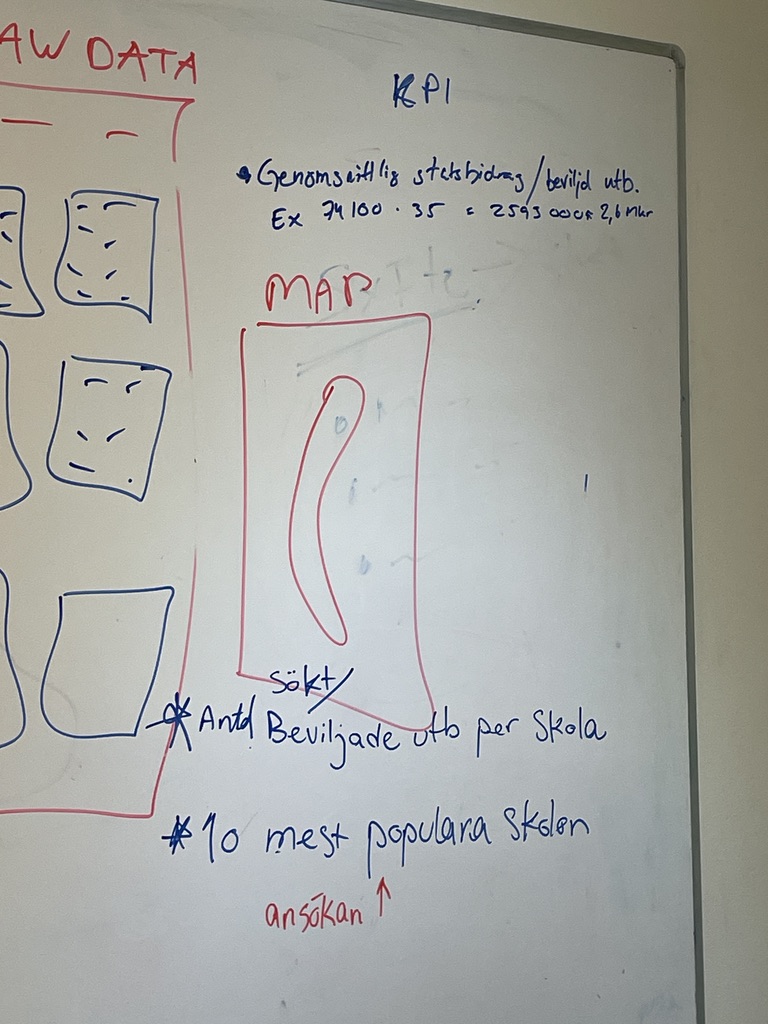 AW DATA
KPI
• Genomsnittlig statsbidrag/beviljd utb.
Ex 74100 · 35 = 2593 000kr 2,6 Mkr
MAP
sökt/
* Antal Beviljade utb per Skola
* 10 mest populara Skolor
ansökan ↑